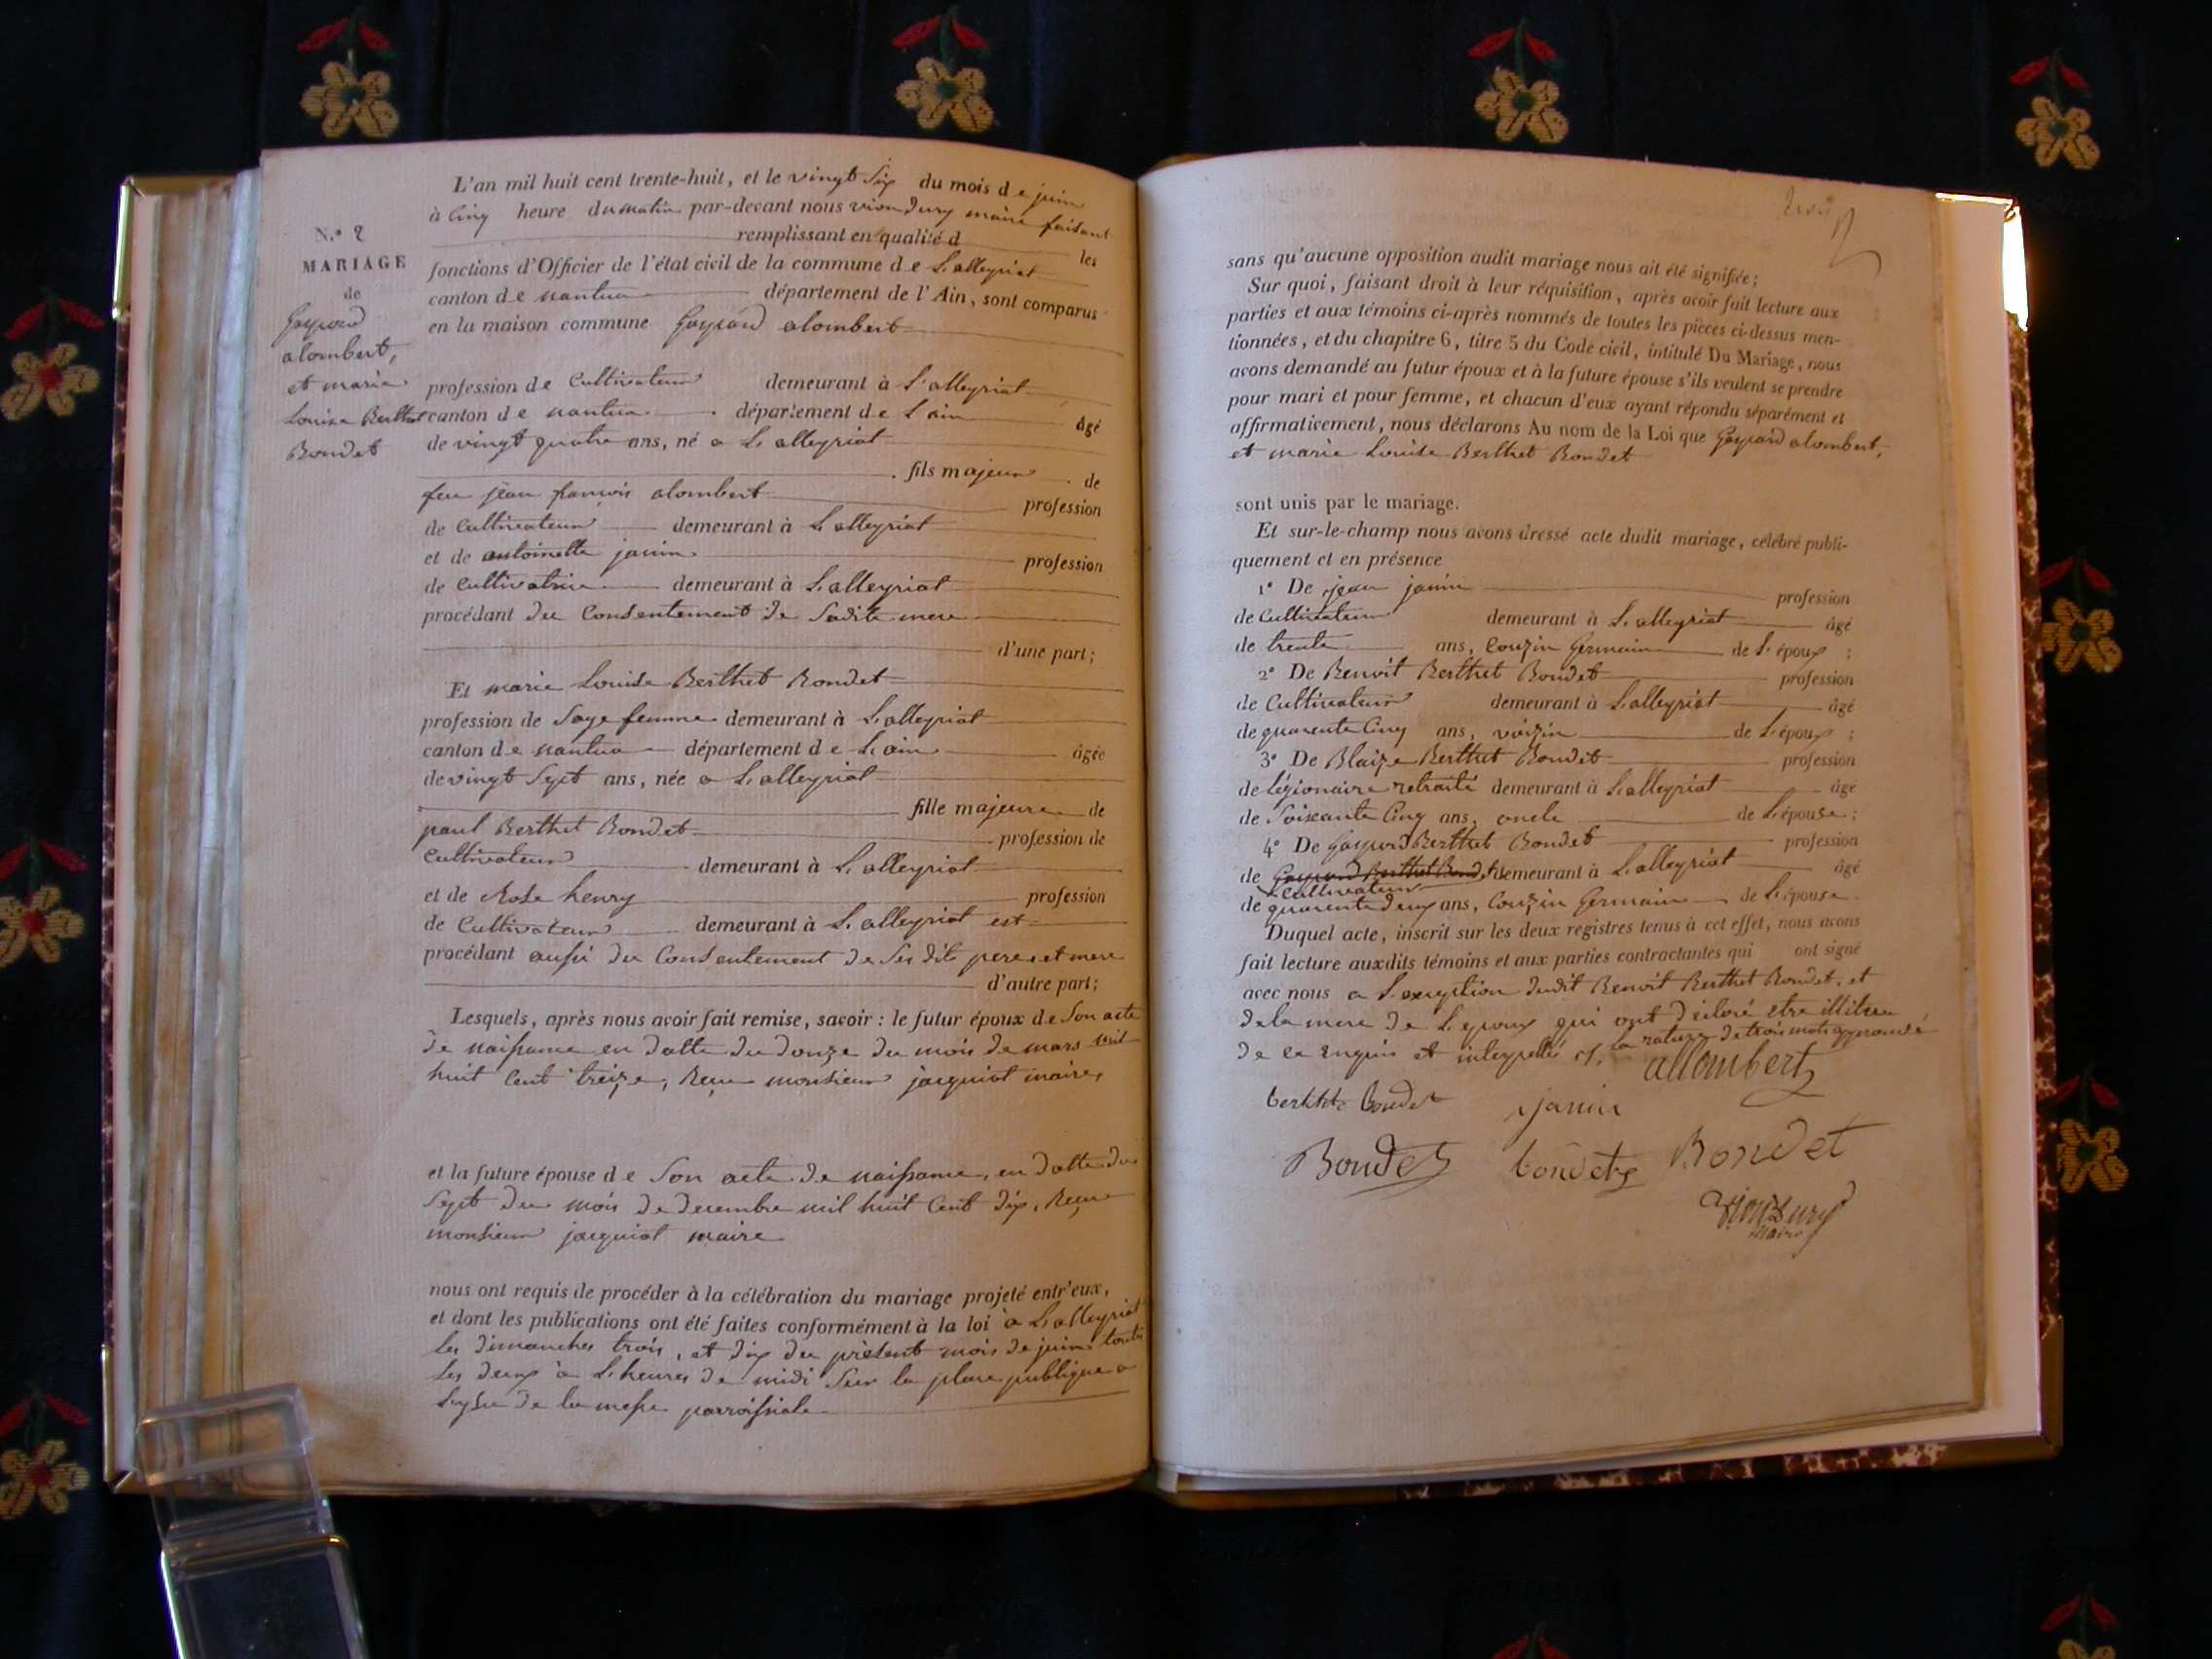 L'an mil huit cent trente-huit, et le vingt Six du mois de juin
à Cinq heure du matin par-devant nous vion dury maire faisant
remplissant en qualité d les
N.° 2
MARIAGE
de
Gaspard
alombert,
et marie
Louise Berthet
Bondet
fonctions d'Officier de l'état civil de la commune de L'alleyriat
canton de nantua département de l'Ain, sont comparus
en la maison commune Gaspard alombert
profession de Cultivateur demeurant à L'alleyriat
canton de nantua département de L'ain âgé
de vingt quatre ans, né a L'alleyriat
fils majeur de
feu jean françois alombert profession
de Cultivateur demeurant à L'alleyriat
et de antoinette janin profession
de Cultivatrice demeurant à L'alleyriat
procédant du Consentement de Sadite mere
d'une part;
Et marie Louise Berthet Bondet
profession de Sage femme demeurant à L'alleyriat
canton de nantua département de L'ain âgée
de vingt Sept ans, née a L'alleyriat
fille majeure de
paul Berthet Bondet profession de
Cultivateur demeurant à L'alleyriat
et de Rose henry profession
de Cultivateur demeurant à L'alleyriat est
procédant aussi du Consentement de Ses dits pere et mere
d'autre part;
Lesquels, après nous avoir fait remise, savoir : le futur époux de Son acte
de naissance en datte du douze du mois de mars mil
huit Cent treize, Reçu monsieur jacquiot maire,
et la future épouse de Son acte de naissance, en datte du
Sept du mois de decembre mil huit Cent dix, Reçu
monsieur jacquiot maire
nous ont requis de procéder à la célébration du mariage projeté entr'eux,
et dont les publications ont été faites conformément à la loi a L'alleyriat
les dimanches trois, et dix du présent mois de juin toutes
les deux à L'heures de midi Sur la place publique a
de la messe parroissiale
sans qu'aucune opposition audit mariage nous ait été signifiée;
Sur quoi, faisant droit à leur réquisition, après avoir fait lecture aux
parties et aux témoins ci-après nommés de toutes les pièces ci-dessus men-
tionnées, et du chapitre 6, titre 5 du Code civil, intitulé Du Mariage, nous
avons demandé au futur époux et à la future épouse s'ils veulent se prendre
pour mari et pour femme, et chacun d'eux ayant répondu séparément et
affirmativement, nous déclarons Au nom de la Loi que Gaspard alombert,
et marie Louise Berthet Bondet
sont unis par le mariage.
Et sur-le-champ nous avons dressé acte dudit mariage, célébré publi-
quement et en présence
1° De jean janin profession
de Cultivateur demeurant à L'alleyriat âgé
de trente ans, Couzin Germain de L'époux ;
2° De Benoit Berthet Bondet profession
de Cultivateur demeurant à L'alleyriat âgé
de quarente Cinq ans, voizin de L'époux ;
3° De Blaize Berthet Bondet profession
de légionaire retraité demeurant à L'alleyriat âgé
de Soixante Cinq ans, oncle de L'épouse ;
4° De Gaspard Berthet Bondet profession
de Gaspard Berthet Bondet demeurant à L'alleyriat âgé
Cultivateur
de quarente deux ans, Couzin Germain de L'épouse
Duquel acte, inscrit sur les deux registres tenus à cet effet, nous avons
fait lecture auxdits témoins et aux parties contractantes qui ont signé
avec nous a L'exception dudit Benoit Berthet Bondet, et
de la mere de L'epoux qui ont déclaré etre illitree
de ce enquis et interpellés la rature de trois mots approuvé
allombert
berthet bondet janin
Bondet bondet Bondet
Vion Dury
Maire